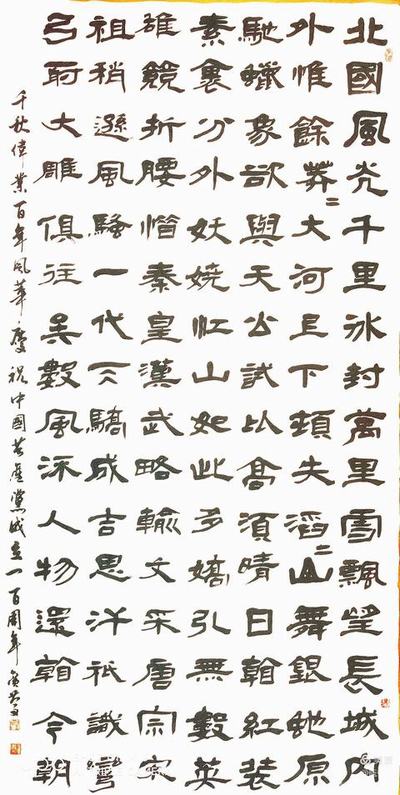 北國風光千里冰封萬里雪飄望長城內
外惟餘莽〻大河上下頓失滔〻山舞銀蛇原
馳蠟象欲與天公試比高須晴日看紅裝
素裹分外妖嬈江山如此多嬌引無數英
雄競折腰惜秦皇漢武略輸文采唐宗宋
祖稍遜風騷一代天驕成吉思汗祇識彎
弓射大雕俱往矣數風流人物還看今朝
千秋偉業百年風華慶祝中國共產黨成立一百周年